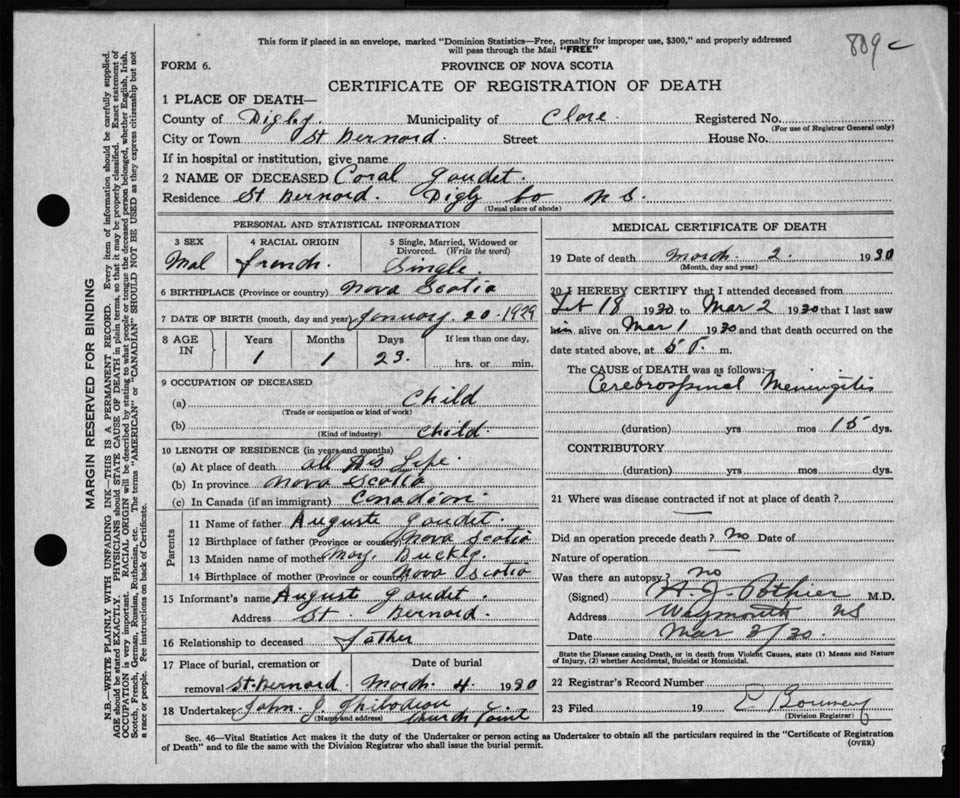 This form if placed in an envelope, marked "Dominion Statistics—Free, penalty for improper use, $300," and properly addressed
will pass through the Mail "FREE"
809 c
FORM 6.
PROVINCE OF NOVA SCOTIA
CERTIFICATE OF REGISTRATION OF DEATH
1 PLACE OF DEATH—
County of Digby. Municipality of Clare. Registered No.
(For use of Registrar General only)
City or Town St Bernard. Street House No.
If in hospital or institution, give name
2 NAME OF DECEASED Coral Gaudet.
Residence St Bernard. Digby Co N S.
(Usual place of abode)
PERSONAL AND STATISTICAL INFORMATION
3 SEX 4 RACIAL ORIGIN 5 Single, Married, Widowed or Divorced. (Write the word)
Mal french. Single.
6 BIRTHPLACE (Province or country) Nova Scotia
7 DATE OF BIRTH (month, day and year) January. 20. 1929
8 AGE IN Years Months Days If less than one day,
1 1 23. hrs. or min.
9 OCCUPATION OF DECEASED
(a) Child
(Trade or occupation or kind of work)
(b) Child
(Kind of industry)
10 LENGTH OF RESIDENCE (in years and months)
(a) At place of death all His Life.
(b) In province Nova Scotia
(c) In Canada (if an immigrant) Canadian.
Parents
11 Name of father Auguste Gaudet.
12 Birthplace of father (Province or country) Nova Scotia
13 Maiden name of mother May.
14 Birthplace of mother (Province or country) Nova Scotia
15 Informant's name August Gaudet.
Address St Bernard.
16 Relationship to deceased father
17 Place of burial, cremation or removal St. Bernard. Date of burial March. 4 1930
18 Undertaker John J Thibodeau
(Name and address) Church Point
MEDICAL CERTIFICATE OF DEATH
19 Date of death March. 2. 1930
(Month, day and year)
20 I HEREBY CERTIFY that I attended deceased from
Feb 18 1930 to Mar 2 1930 that I last saw
him alive on Mar 1 1930 and that death occurred on
date stated above, at 5 P. m.
The CAUSE of DEATH was as follows:
Cerebrospinal Meningitis
(duration) yrs mos 15 dys.
CONTRIBUTORY
(duration) yrs. mos dys.
21 Where was disease contracted if not at place of death?
Did an operation precede death? No Date of
Nature of operation
Was there an autopsy? no
(Signed) H. J. Pothier M.D.
Address Weymouth NS
Date Mar 3/30.
State the Disease Causing Death, or in death from Violent Causes, state (1) Means and Nature
of Injury, (2) whether Accidental, Suicidal or Homicidal.
22 Registrar's Record Number
23 Filed 19
(Division Registrar)
Sec. 46—Vital Statistics Act makes it the duty of the Undertaker or person acting as Undertaker to obtain all the particulars required in the "Certificate of Registration
of Death" and to file the same with the Division Registrar who shall issue the burial permit.
(OVER)
MARGIN RESERVED FOR BINDING
N.B.—WRITE PLAINLY WITH UNFADING INK—THIS IS A PERMANENT RECORD. Every item of information should be carefully supplied.
AGE should be stated EXACTLY. PHYSICIANS should STATE CAUSE OF DEATH in plain terms, so that it may be properly classified. Exact statement of
OCCUPATION is very important. RACIAL ORIGIN will be described by stating to what people or tongue the deceased person belonged, whether English, Irish,
Scotch, French, German, Russian, Ruthenian, etc. The terms "AMERICAN" or "CANADIAN" SHOULD NOT BE USED as they express citizenship but not
a race or people. Fee instructions on back of Certificate.